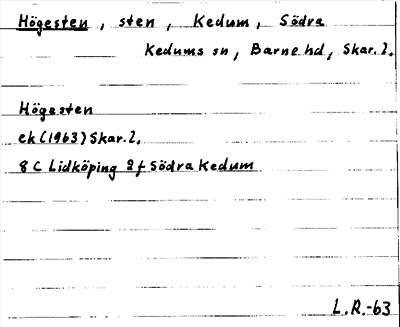 Högesten, sten, Kedum, Södra
Kedums sn, Barne hd, Skar.l.
Högesten
ek (1963) Skar.l.
8 C Lidköping 2 f Södra Kedum
L.R.-63